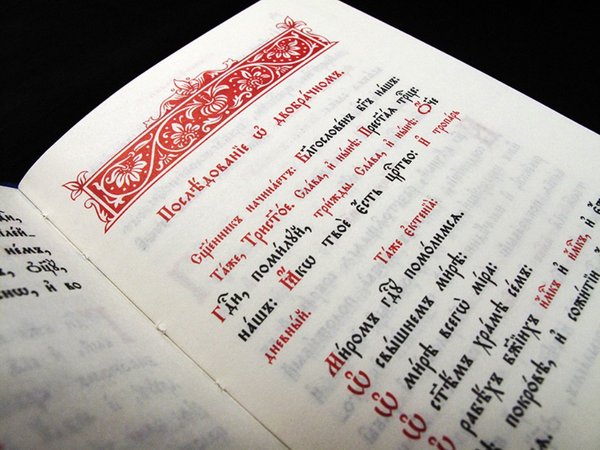 нимъ,
и҆ во
Послѣ́дованїе ѡ҆ двобра́чномъ.
Сщ҃е́нникъ начина́етъ: Бл҃гослове́нъ бг҃ъ на́шъ:
Та́же, Трист҃о́е. Сла́ва, и҆ ны́нѣ: Прест҃а́ѧ трⷪ҇це:
Гдⷭ҇и, поми́лꙋй, три́жды. Сла́ва, и҆ ны́нѣ: Ѻ҆́ч҃е
на́шъ: Ꙗ҆́кѡ твоѐ є҆́сть црⷭ҇тво: И҆ тропа́рь
дне́вный.
Та́же є҆ктенїѝ:
Ми́ромъ гдⷭ҇ꙋ помо́лимсѧ.
Ѡ҆ свы́шнемъ ми́рѣ:
Ѡ҆ ми́рѣ всегѡ̀ мі́ра:
Ѡ҆ ст҃ѣ́мъ хра́мѣ се́мъ:
Ѡ҆ рабѣ́хъ бж҃їихъ и҆́м︮к︯ъ и҆ и҆́м︮к︯ъ, и҆
покро́вѣ, и҆ сожи́тїи